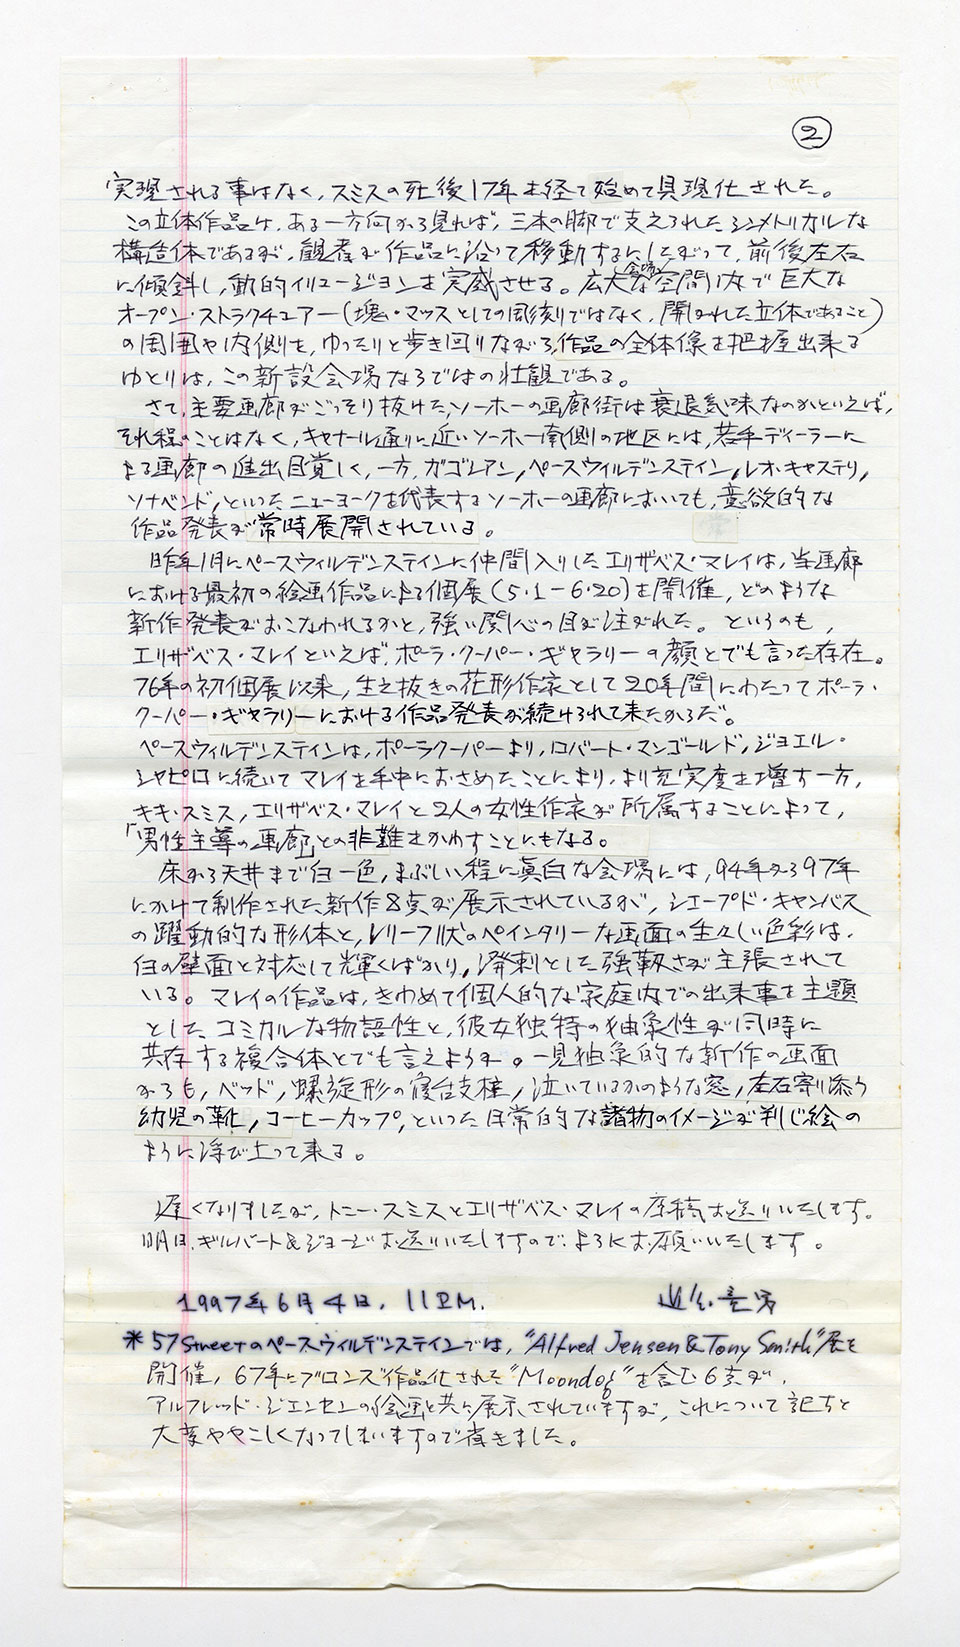 ②
実現される事はなく、スミスの死後17年を経て始めて具現化された。
この立体作品は、ある一方向から見れば、三本の脚で支えられたシンメトリカルな
構造体であるが、観者が作品に沿って移動するにしたがって、前後左右
に傾斜し、動的イリュージョンを実感させる。広大な空間内で巨大な
オープン・ストラクチュアー(塊・マッスとしての彫刻ではなく、開かれた立体であること)
の周囲や内側を、ゆったりと歩き回りながら、作品の全体像を把握出来る
ゆとりは、この新設会場ならではの壮観である。
さて、主要画廊がごっそり抜けた、ソーホーの画廊街は衰退気味なのかといえば、
それ程のことはなく、キャナール通りに近いソーホー南側の地区には、若手ディーラーに
よる画廊の進出目覚しく、一方、ガゴシアン、ペースウィルデンステイン、レオ・キャステリ、
ソナベンド、といったニューヨークを代表するソーホーの画廊においても、意欲的な
作品発表が常時展開されている。
昨年1月にペースウィルデンステインに仲間入りしたエリザベス・マレイは、当画廊
における最初の絵画作品による個展(5・1-6・20)を開催、どのような
新作発表がおこなわれるかと、強い関心の目が注がれた。というのも、
エリザベス・マレイといえば、ポーラ・クーパー・ギャラリーの顔とでも言った存在。
76年の初個展以来、生え抜きの花形作家として20年間にわたってポーラ・
クーパー・ギャラリーにおける作品発表が続けられて来たからだ。
ペースウィルデンステインは、ポーラクーパーより、ロバート・マンゴールド、ジョエル・
シャピロに続いてマレイを手中におさめたことにより、より充実度を増す一方、
キキ・スミス、エリザベス・マレイと2人の女性作家が所属することによって、
「男性主導の画廊」との非難をかわすことにもなる。
床から天井まで白一色、まぶしい程に真白な会場には、94年から97年
にかけて制作された新作8点が展示されているが、シェープド・キャンバス
の躍動的な形体と、レリーフ状のペインタリーな画面の生々しい色彩は、
白の壁面と対応して輝くばかり、溌剌とした強靱さが主張されて
いる。マレイの作品は、きわめて個人的な家庭内での出来事を主題
とした、コミカルな物語性と、彼女独特の抽象性が同時に
共存する複合体とでも言えようか。一見抽象的な新作の画面
からも、ベッド、螺旋形の寝台支柱、泣いているかのような窓、左右寄り添う
幼児の靴、コーヒーカップ、といった日常的な諸物のイメージが判じ絵の
ように浮び上って来る。
遅くなりましたが、トニー・スミスとエリザベス・マレイの原稿お送りいたします。
明日、ギルバート&ジョージお送りいたしますので、よろしくお願いいたします。
1997年6月4日、11P.M.
＊57Streetのペースウィルデンステインでは、"Alfred Jensen & Tony Smith"展を
開催、67年にブロンズ作品化された"Moondog"を含む6点が、
アルフレッド・ジェンセンの絵画と共に展示されていますが、これについて記すと
大変ややこしくなってしまいますので省きました。